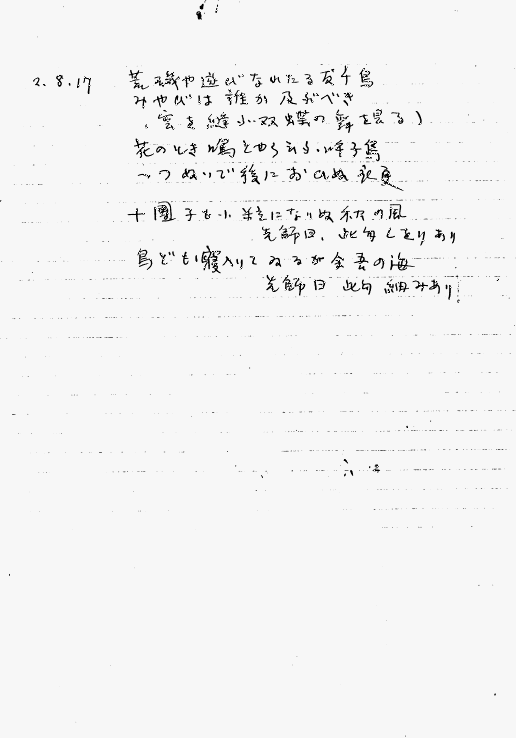 2.8.17 荒磯や遊びなれたる友千鳥
みやびは誰か及ぶべき
(雲を縫小双蝶の舞を見る)
花のとき とやらいふ呼子鳥
一つぬいで後におひぬ衣更
十團子も小粒になりぬ秋の風
先師曰、此句しをりあり
鳥ども寝入りてゐるか余吾の海
先師曰 此句細みあり